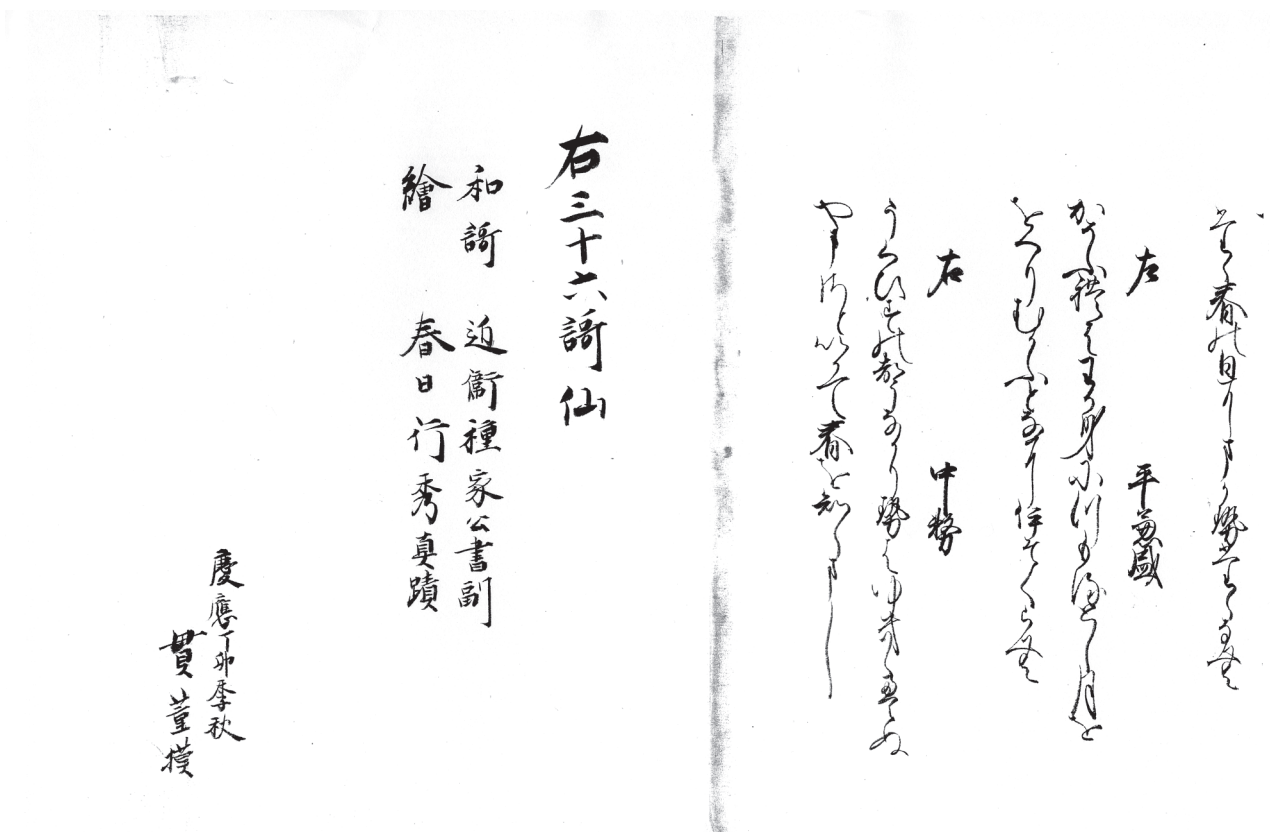 左　平兼盛
かそふ禮はわか身に川もるとし月を
をくりむかふとなにいそくらむ
右　中務
うくひすの聲なかり勢はゆききえぬ
やまさといかて春を知らまし
右三十六謌仙
和謌　近衞種家公書副
繪　春日行秀真蹟
慶應丁卯季秋
貫董摸